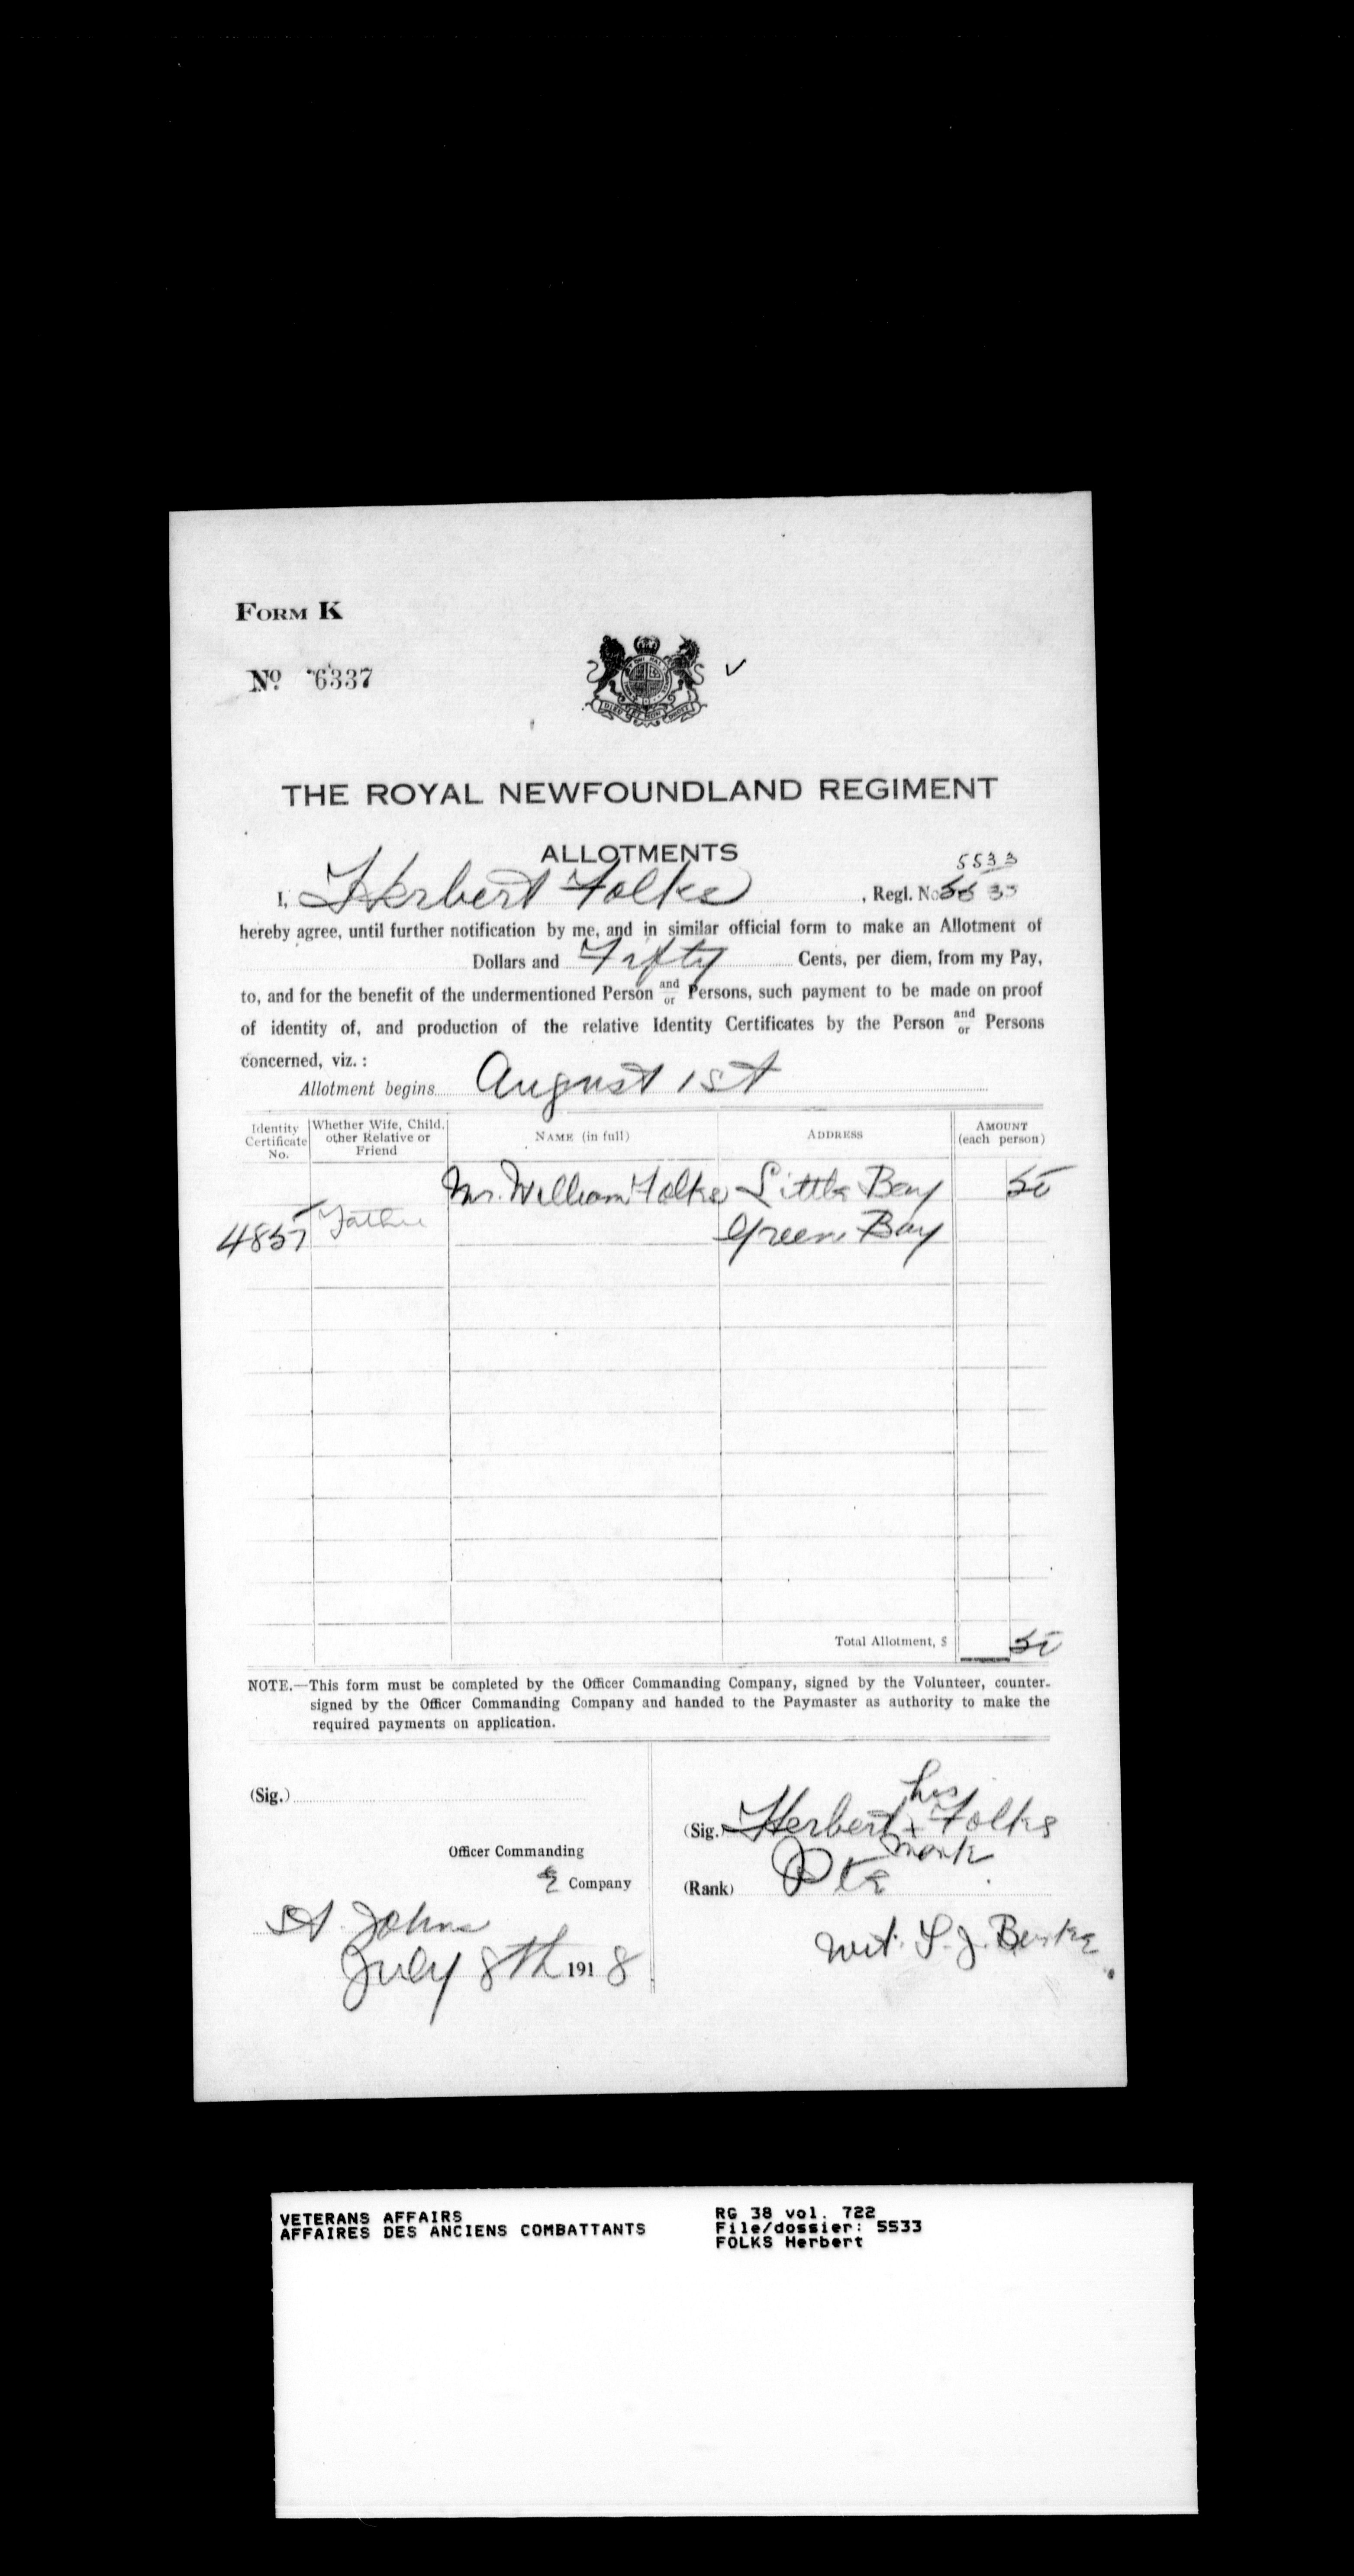 FORM K
No 6337
THE ROYAL NEWFOUNDLAND REGIMENT
ALLOTMENTS
5533
I, Herbert Folks, Regl. No. 5533
hereby agree, until further notification by me, and in similar official form to make an Allotment of
Dollars and Fifty Cents, per diem, from my Pay,
to, and for the benefit of the undermentioned Person and/or Persons, such payment to be made on proof
of identity of, and production of the relative Identity Certificates by the Person and/or Persons
concerned, viz. :
Allotment begins August 1st
Identity Certificate No.
Whether Wife, Child, other Relative or Friend
NAME (in full)
ADDRESS
AMOUNT (each person)
Mr. William Folks Little Bay 50
4857 Father Green Bay
Total Allotment, $ 50
NOTE.—This form must be completed by the Officer Commanding Company, signed by the Volunteer, counter-
signed by the Officer Commanding Company and handed to the Paymaster as authority to make the
required payments on application.
(Sig.)
Officer Commanding
Company
St. Johns
July 8th 1918
his
(Sig.) Herbert x Folks
mark
(Rank) Pte
Wit.
VETERANS AFFAIRS
AFFAIRES DES ANCIENS COMBATTANTS
RG 38 vol. 722
File/dossier: 5533
FOLKS Herbert